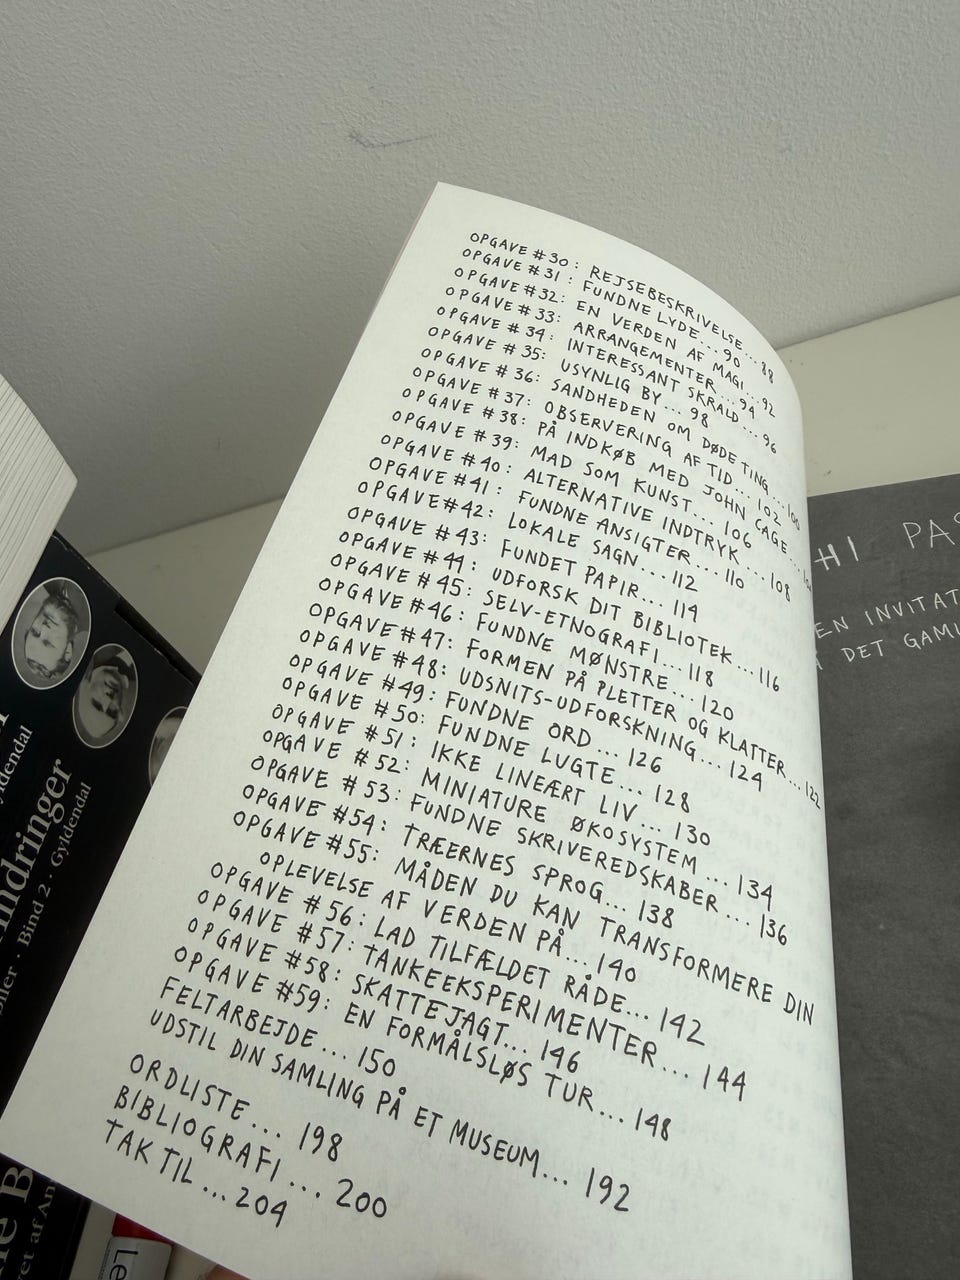 OPGAVE #30: REJSEBESKRIVELSE... 88
OPGAVE #31: FUNDNE LYDE... 90
OPGAVE #32: EN VERDEN AF MAGI... 92
OPGAVE #33: ARRANGEMENTER... 94
OPGAVE #34: INTERESSANT SKRALD... 96
OPGAVE #35: USYNLIG BY... 98
OPGAVE #36: SANDHEDEN OM DØDE TING... 100
OPGAVE #37: OBSERVERING AF TID... 102
OPGAVE #38: PÅ INDKØB MED JOHN CAGE...
OPGAVE #39: MAD SOM KUNST... 106
OPGAVE #40: ALTERNATIVE INDTRYK... 108
OPGAVE #41: FUNDNE ANSIGTER... 110
OPGAVE #42: LOKALE SAGN... 112
OPGAVE #43: FUNDET PAPIR... 114
OPGAVE #44: UDFORSK DIT BIBLIOTEK... 116
OPGAVE #45: SELV-ETNOGRAFI... 118
OPGAVE #46: FUNDNE MØNSTRE... 120
OPGAVE #47: FORMEN PÅ PLETTER OG KLATTER... 122
OPGAVE #48: UDSNITS-UDFORSKNING... 124
OPGAVE #49: FUNDNE ORD... 126
OPGAVE #50: FUNDNE LUGTE... 128
OPGAVE #51: IKKE LINEÆRT LIV... 130
OPGAVE #52: MINIATURE ØKOSYSTEM... 134
OPGAVE #53: FUNDNE SKRIVEREDSKABER... 136
OPGAVE #54: TRÆERNES SPROG... 138
OPGAVE #55: MÅDEN DU KAN TRANSFORMERE DIN
OPLEVELSE AF VERDEN PÅ... 140
OPGAVE #56: LAD TILFÆLDET RÅDE... 142
OPGAVE #57: TANKEEKSPERIMENTER... 144
OPGAVE #58: SKATTEJAGT... 146
OPGAVE #59: EN FORMÅLSLØS TUR... 148
FELTARBEJDE... 150
UDSTIL DIN SAMLING PÅ ET MUSEUM... 192
ORDLISTE... 198
BIBLIOGRAFI... 200
TAK TIL... 204
HI PAS
EN INVITAT
DET GAML
Gyldendal
ndringer
Bind 2 · Gyldendal
et af An
Le